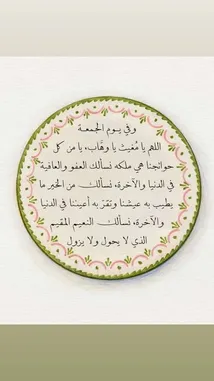 وفي يوم الجمعة
اللهم يا مُغيث يا وهَّاب، يا من كل
حوائجنا هي ملكه نسألك العفو والعافية
في الدنيا والآخرة، نسألك من الخير ما
يطيب به عيشنا وتقرّ به أعيننا في الدنيا
والآخرة، نسألك النعيم المقيم
الذي لا يحول ولا يزول